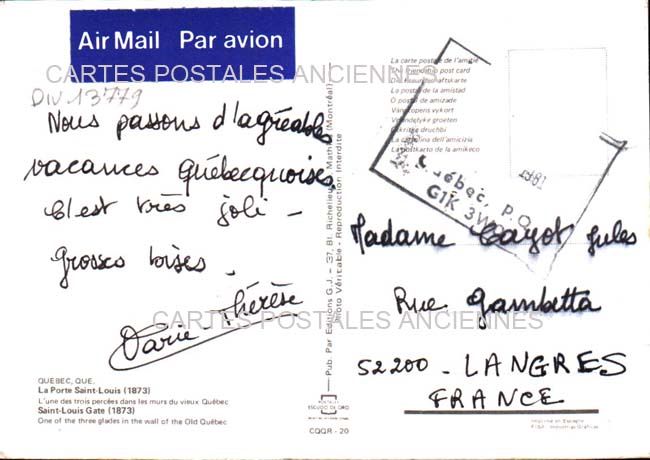 Air Mail Par avion
CARTES POSTALES ANCIENNES
DIV 13779
Nous passons d'agréables
vacances Québecquoises.
C'est très joli -
grosses bises.
Marie-Thérèse
CARTES POSTALES ANCIENNES
QUEBEC, QUE.
La Porte Saint-Louis (1873)
L'une des trois percées dans les murs du vieux Québec
Saint-Louis Gate (1873)
One of the three glades in the wall of the Old Québec
Pub. Par Editions G.J. - 37, Bl. Richelieu, Mathias (Montréal)
Photo Véritable - Reproduction Interdite
POSTALES
ESCUDO DE ORO
CQQR - 20
La carte postale de l'amitié
The friendship post card
La postal de la amistad
O postal de amizade
Vänskapens vykort
Vriendelijke groeten
La cartolina dell'amicizia
La postkarto de la amikeco
Québec, P.Q.
G1K 3W0
1981
Madame Cayot Jules
Rue Gambetta
52200 - LANGRES
FRANCE